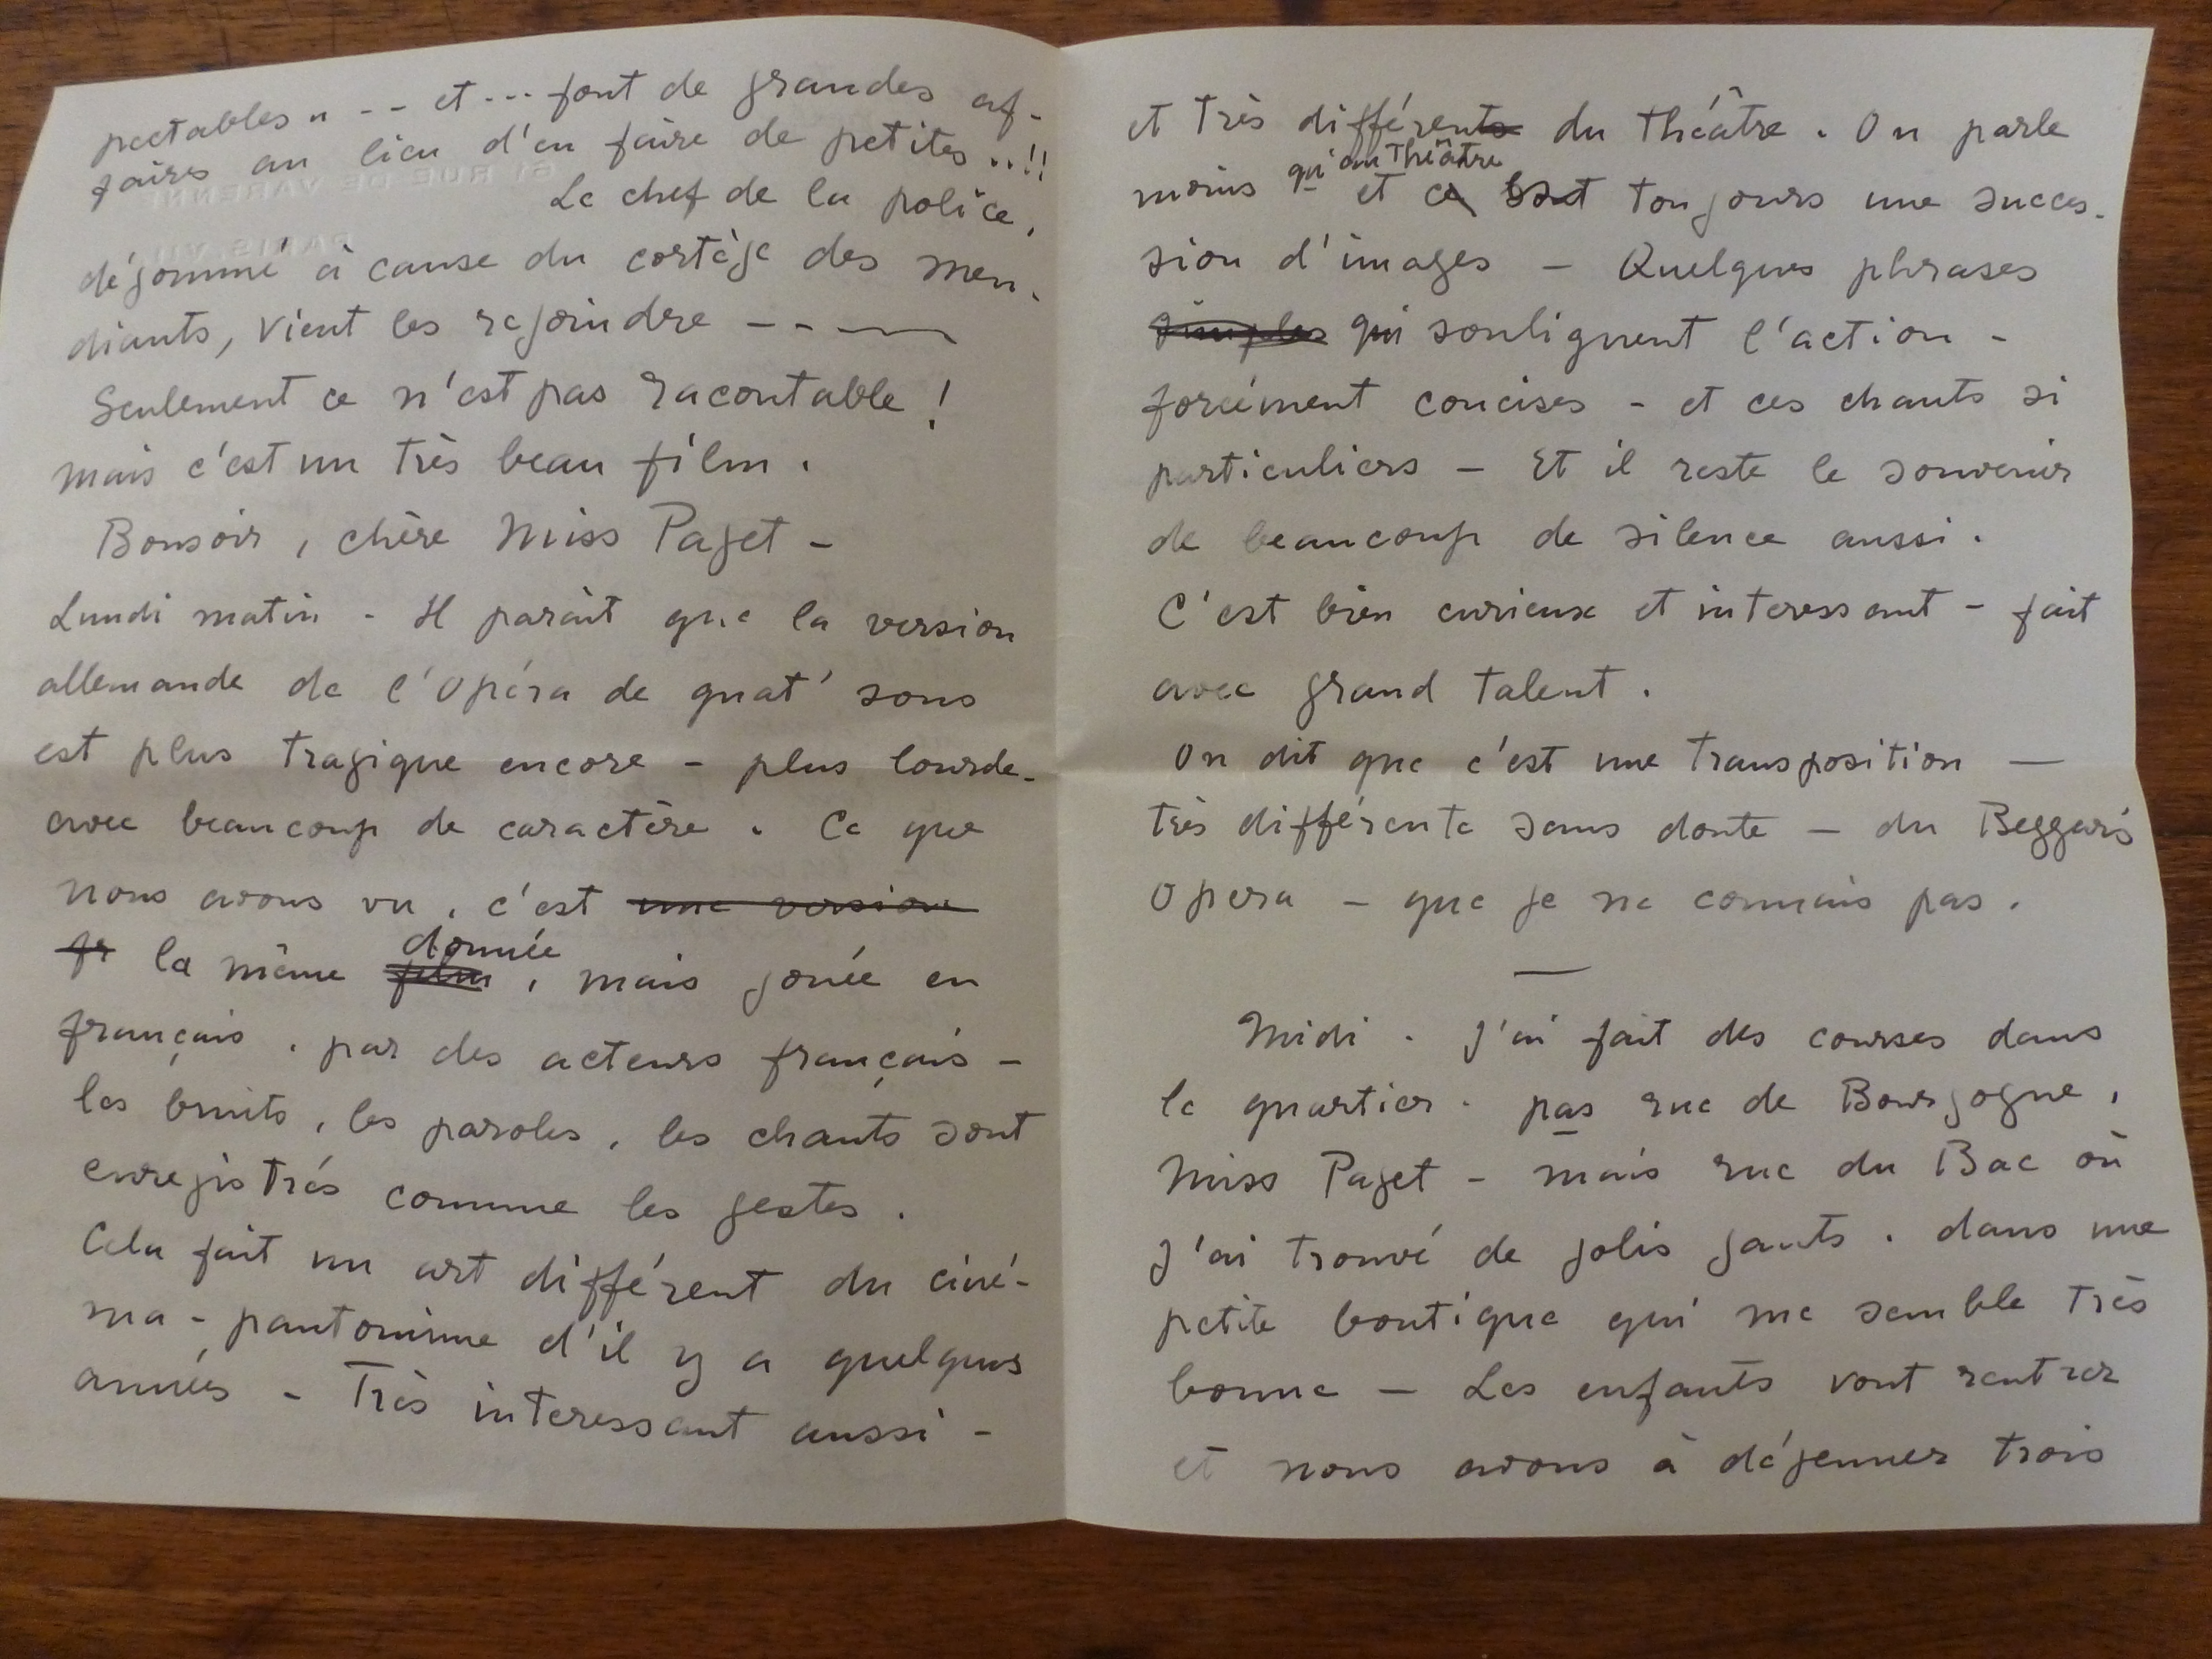 pectables " -- et --- font de grandes af-
faires au lieu d'en faire de petites ..!!
61 RUE DE VARENNE
Le chef de la police,
PARIS. VII
dégommé à cause du cortège des men-
diants, vient les rejoindre ---
Seulement ce n'est pas racontable !
mais c'est un très beau film.
Bonsoir, chère Miss Paget -
Lundi matin - Il parait que la version
allemande de l'Opéra de quat' sous
est plus tragique encore - plus lourde-
avec beaucoup de caractère. Ce que
nous avons vu, c'est une version
fr la même film donnée, mais jouée en
français, par des acteurs français -
les bruits, les paroles, les chants sont
enregistrés comme les gestes.
Cela fait un art différent du ciné-
ma-pantomime d'il y a quelques
années - Très interessant aussi -
et très différents du théâtre. On parle
moins qu'au théâtre et ce sont toujours une succes-
sion d'images - Quelques phrases
simples qui soulignent l'action -
forcément concises - et ces chants si
particuliers - Et il reste le souvenir
de beaucoup de silence aussi.
C'est bien curieux et interessant - fait
avec grand talent.
On dit que c'est une transposition —
très différente sans doute - du Beggar's
Opera - que je ne connais pas.
—
Midi. J'ai fait des courses dans
le quartier. pas rue de Bourgogne,
Miss Paget - mais rue du Bac où
j'ai trouvé de jolis gants. dans une
petite boutique qui me semble très
bonne - Les enfants vont rentrer
et nous avons à déjeuner trois